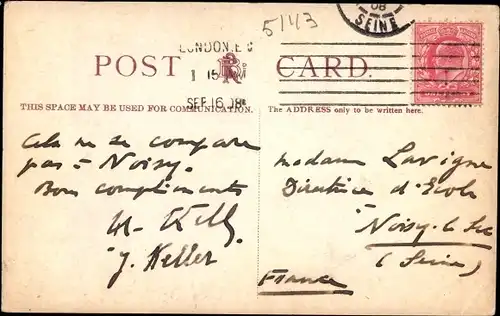 5143
08
SEINE
LONDON. E C
1 15 AM
SEP 16 08
POST R CARD.
THIS SPACE MAY BE USED FOR COMMUNICATION.
The ADDRESS only to be written here.
Cela ne se compare
pas à Noisy.
Bons compliments
Kelly
J. Keller
Madame Lavigne
Directrice d'Ecole
Noisy-le Sec
(Seine)
France